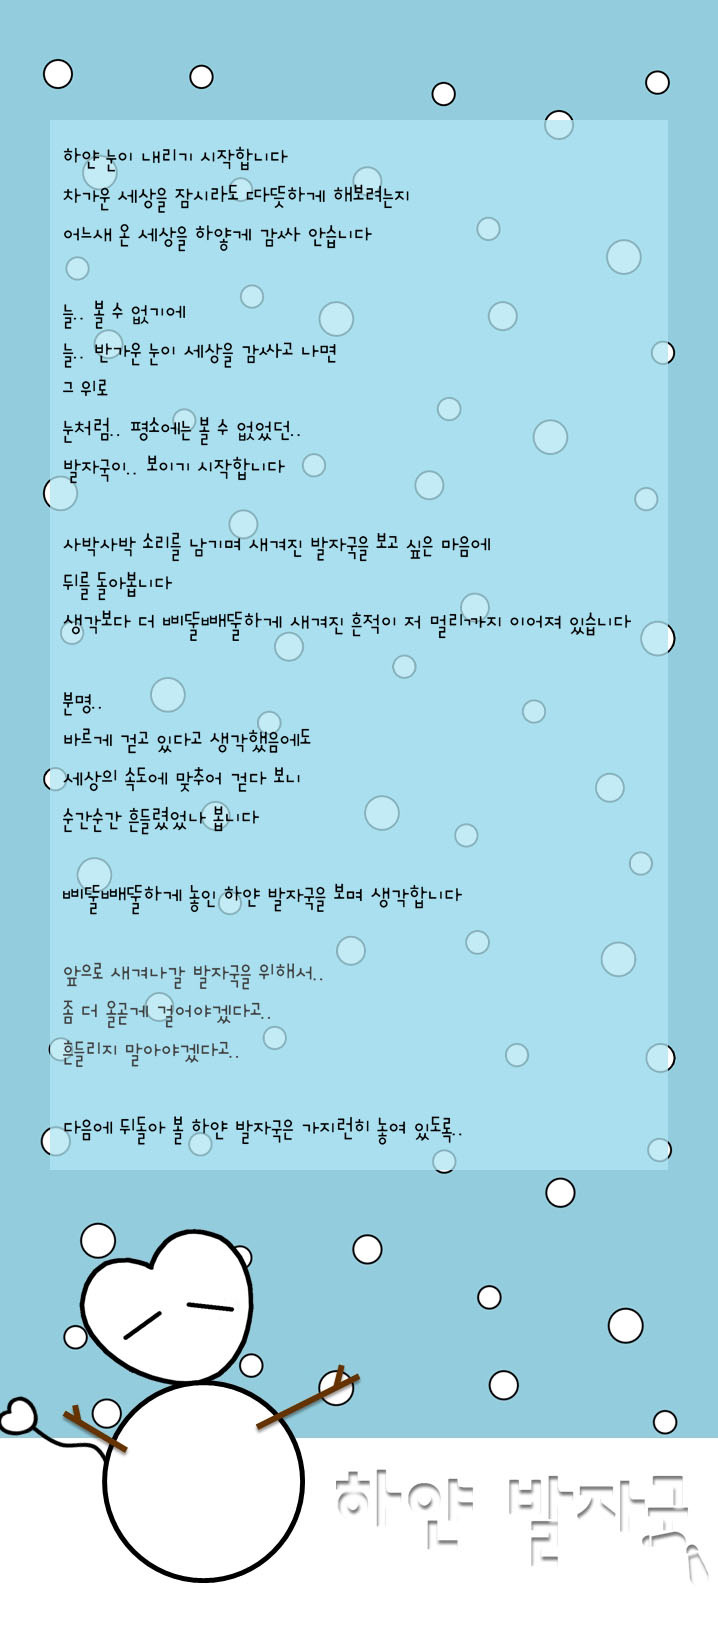 하얀 눈이 내리기 시작합니다
차가운 세상을 잠시라도 따뜻하게 해보려는지
어느새 온 세상을 하얗게 감싸 안습니다
늘.. 볼 수 없기에
늘.. 반가운 눈이 세상을 감싸고 나면
그 위로
눈처럼.. 평소에는 볼 수 없었던..
발자국이.. 보이기 시작합니다
사박사박 소리를 남기며 새겨진 발자국을 보고 싶은 마음에
뒤를 돌아봅니다
생각보다 더 삐뚤빼뚤하게 새겨진 흔적이 저 멀리까지 이어져 있습니다
분명..
바르게 걷고 있다고 생각했음에도
세상의 속도에 맞추어 걷다 보니
순간순간 흔들렸었나 봅니다
삐뚤빼뚤하게 놓인 하얀 발자국을 보며 생각합니다
앞으로 새겨나갈 발자국을 위해서..
좀 더 올곧게 걸어야겠다고..
흔들리지 말아야겠다고..
다음에 뒤돌아 볼 하얀 발자국은 가지런히 놓여 있도록..
하얀 발자국